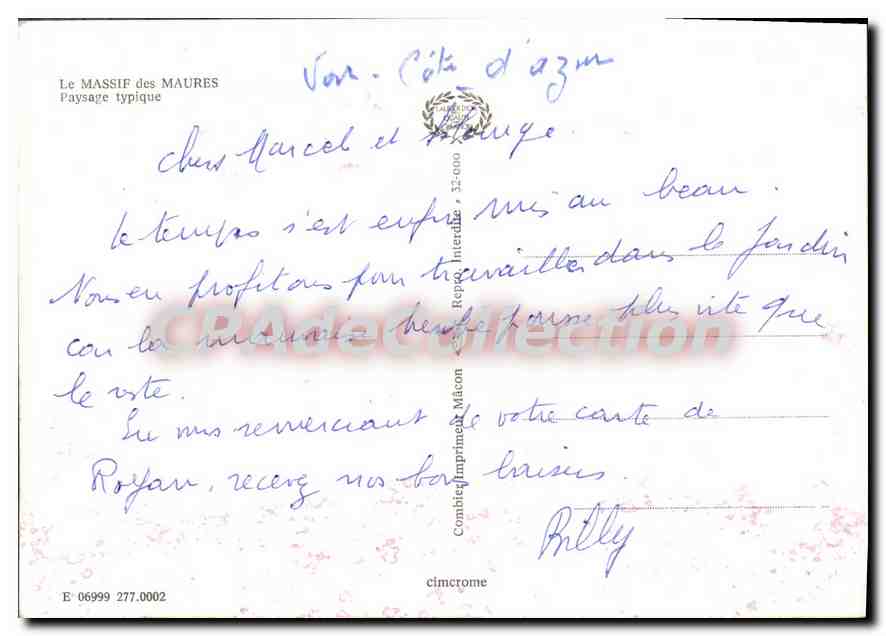 Le MASSIF des MAURES
Paysage typique
Var - Côte d'azur
Chers Marcel et
Le temps s'est enfin mis au beau.
Nous en profitons pour travailler dans le Jardin
car la mauvaise herbe pousse plus vite que
le reste.
En vous remerciant de votre carte de
Royan, recevez nos bons baisers.
Billy
Combier Imprimeur Mâcon
Repro. Interdite - 32-000
CPAdeCollection
cimcrome
E 06999 277.0002